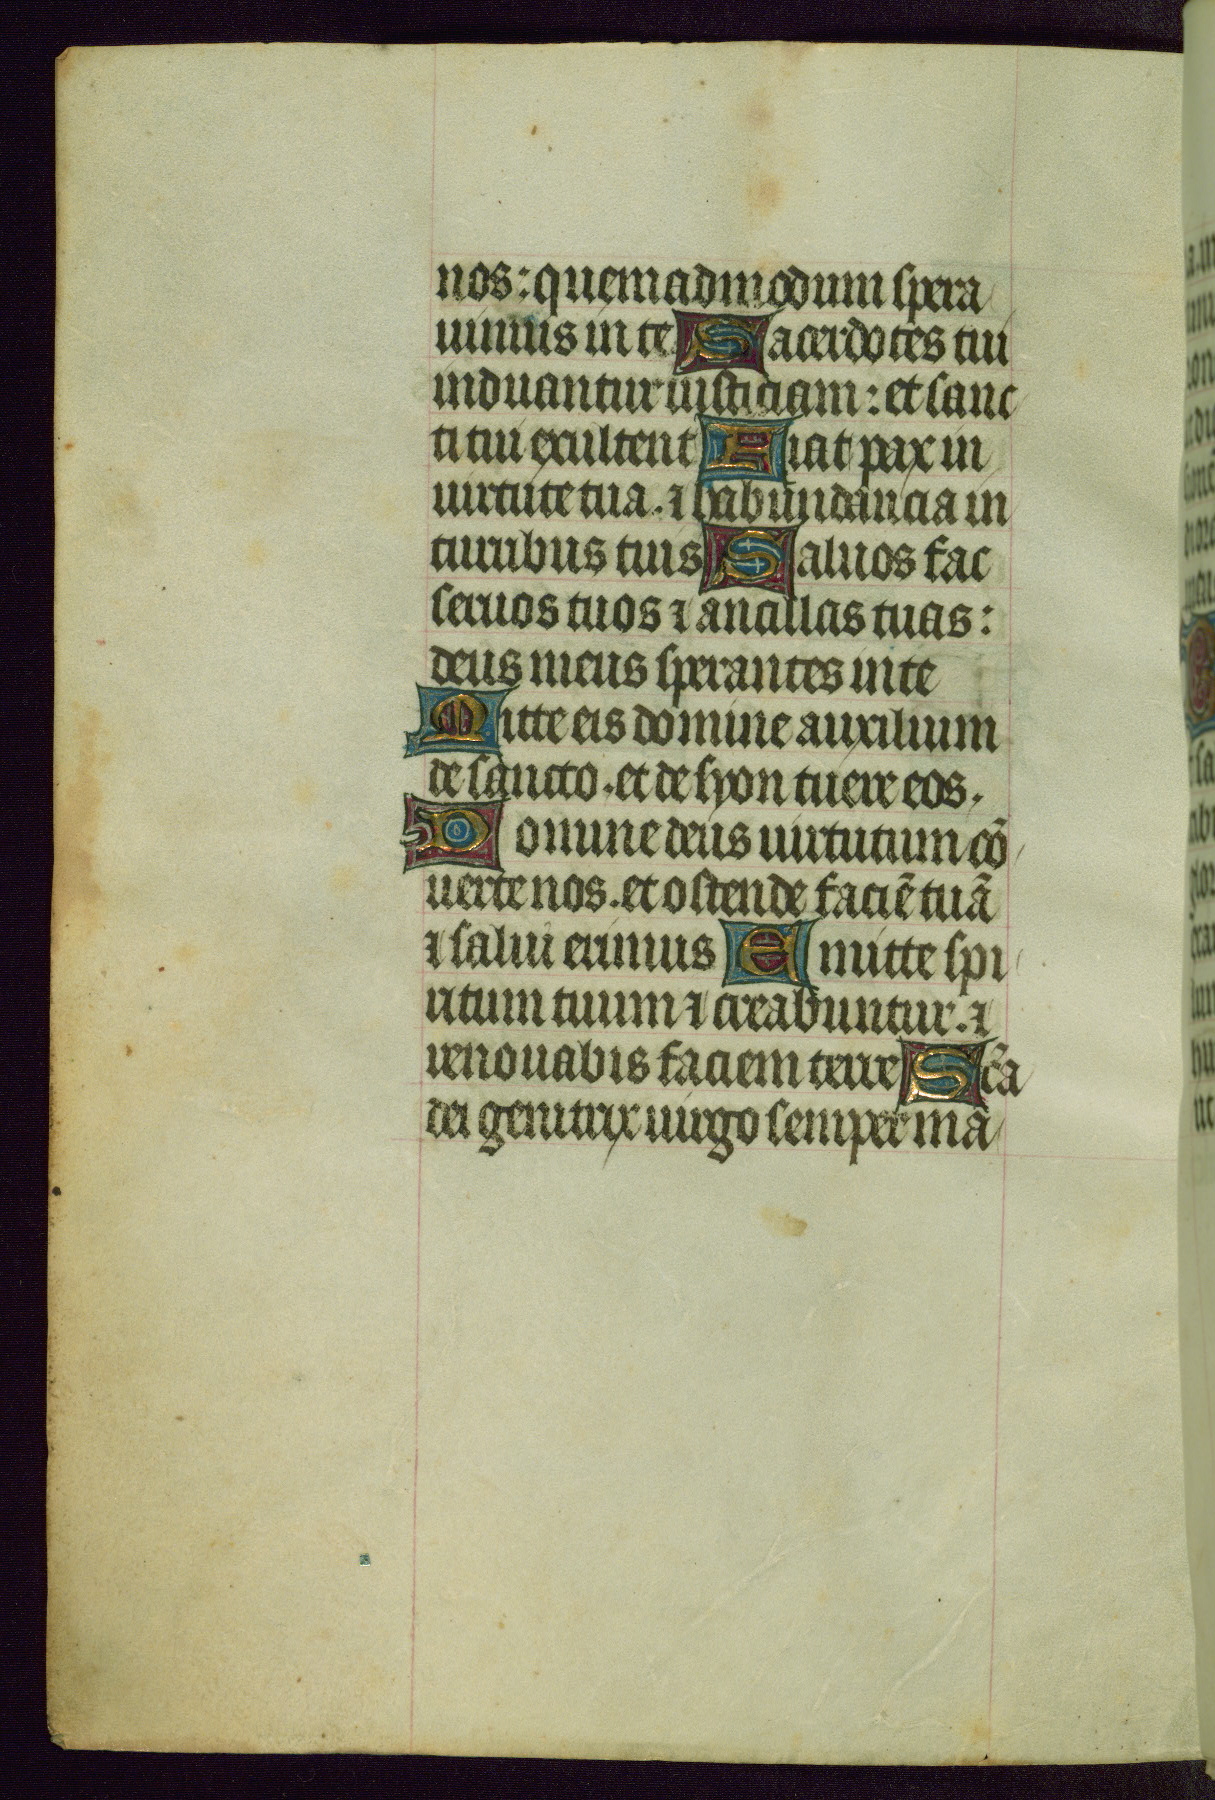 nos: quemadmodum spera
uimus in te Sacerdotes tui
induantur iusticiam: et sanc
ti tui exultent Fiat pax in
uirtute tua. ⁊ habundancia in
turribus tuis Saluos fac
seruos tuos ⁊ ancillas tuas:
deus meus sperantes in te
Mitte eis domine auxilium
de sancto. et de syon tuere eos.
Domine deus uirtutum cō
uerte nos. et ostende faciē tuā
⁊ salui erimus Emitte spi
ritum tuum ⁊ creabuntur. ⁊
renouabis faciem terre Scā
dei genitrix uirgo semper mā